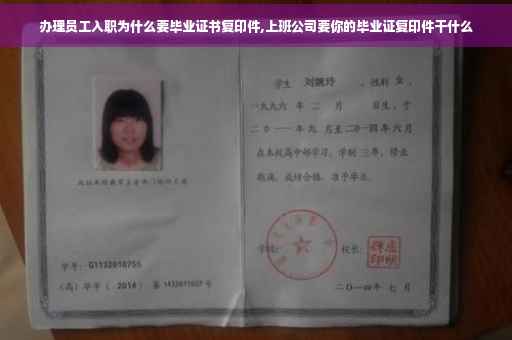 办理员工入职为什么要毕业证书复印件,上班公司要你的毕业证复印件干什么
学生 刘婉玲 ,性别 女 ,
一九九六 年 二 月 日生,于
二〇一一年 九 月至二〇一四年 六月
在本校高中部学习,学制 三年,修业
期满,成绩合格,准予毕业。
学校: 校长:
学号: G1132010755
(高)毕字( 2014 )第 1432011007 号
二〇一四年 七 月